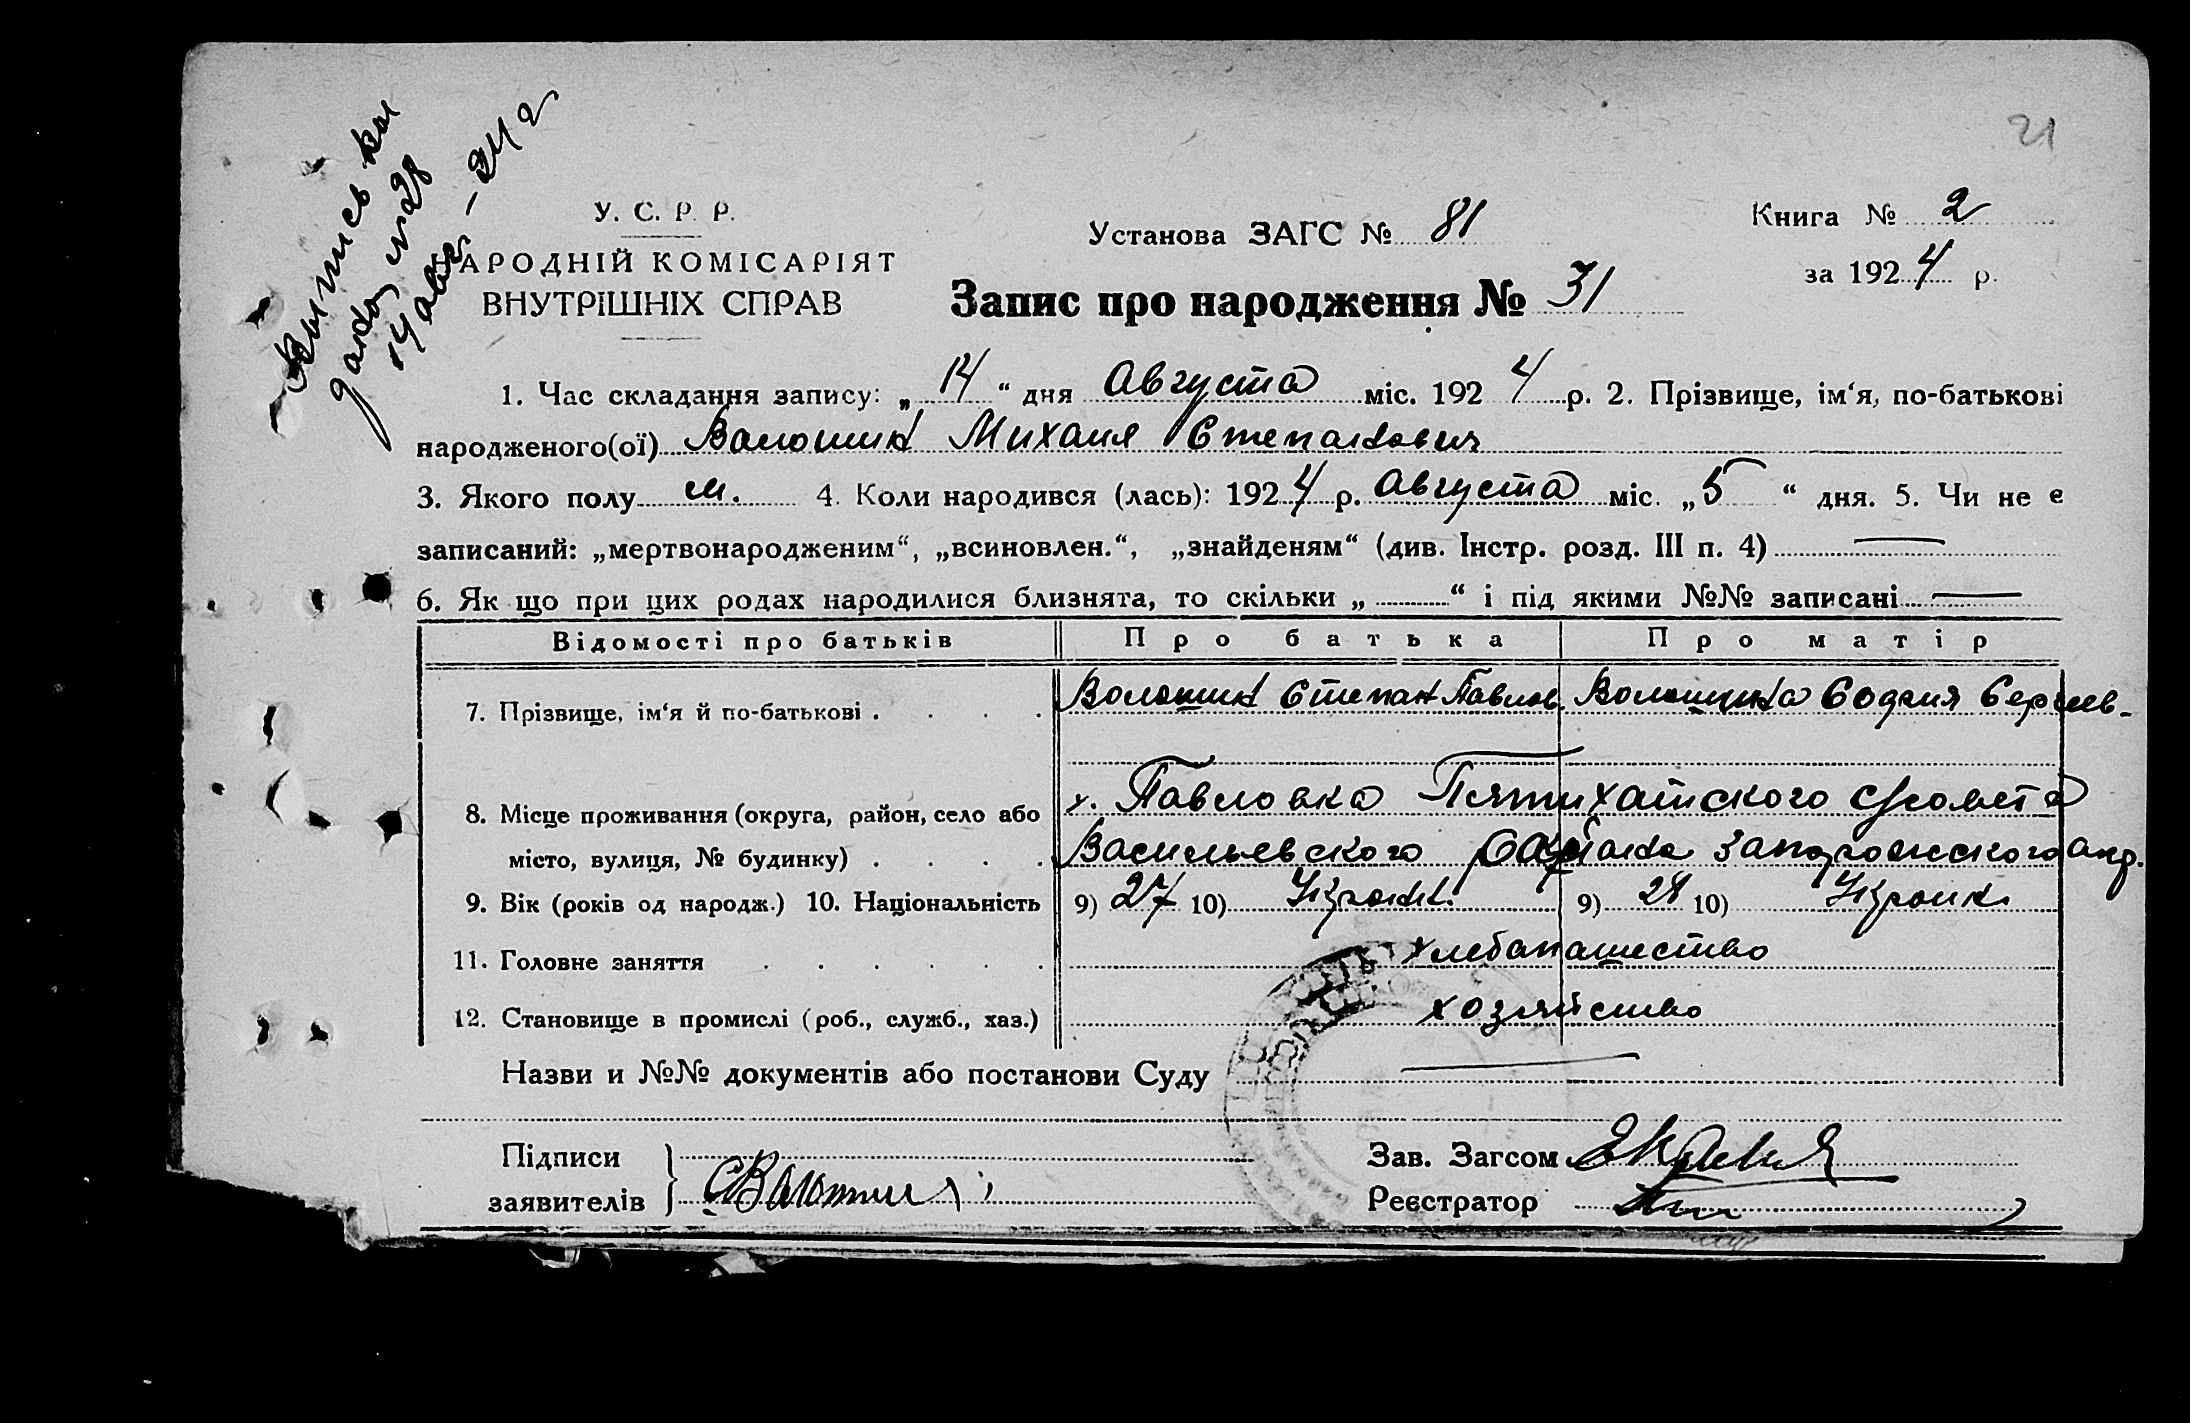 21
Выпись вы
дана за № 28
14 авг. – 24 г
У. С. Р. Р.
НАРОДНІЙ КОМІСАРІЯТ
ВНУТРІШНІХ СПРАВ
Установа ЗАГС № 81
Книга № 2
за 1924 р.
Запис про народження № 31
1. Час складання запису: „14“ дня Августа міс. 1924 р. 2. Прізвище, ім‘я, по-батькові
народженого(ої) Волошин Михаил Степанович
3. Якого полу м. 4. Коли народився (лась): 1924 р. Августа міс. „5“ дня. 5. Чи не є
записаний: „мертвонародженим“, „всиновлен.“, „знайденям“ (див. Інстр. розд. III п. 4) —
6. Як що при цих родах народилися близнята, то скільки „ “ і під якими №№ записані —
Відомості про батьків Про батька Про матір
7. Прізвище, ім‘я й по-батькові . . . . Волошин Степан Павлов. Волошина София Сергеев.
8. Місце проживання (округа, район, село або х. Павловка Пятихатского с/совета
місто, вулиця, № будинку) . . . . Васильевского района Запорожского окр.
9. Вік (років од народж.) 10. Національність 9) 27 10) Украин. 9) 28 10) Украин.
11. Головне заняття . . . . . . хлебопашество
12. Становище в промислі (роб., служб., хаз.) хозяйство
Назви и №№ документів або постанови Суду —
Підписи
заявителів } СВолошин
Зав. Загсом
Реєстратор